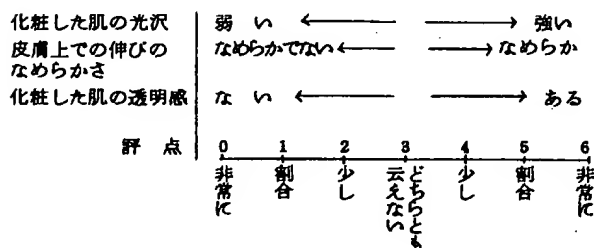 化粧した肌の光沢 弱い ← → 強い
皮膚上での伸びの なめらかでない ← → なめらか
なめらかさ
化粧した肌の透明感 ない ← → ある
評点 0 1 2 3 4 5 6
非常に 割合 少し どちらとも云えない 少し 割合 非常に